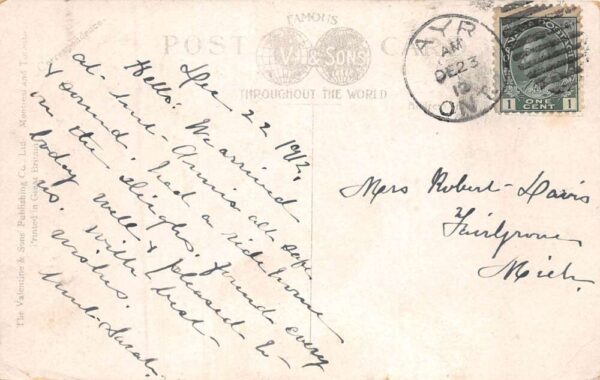 FAMOUS
POST CARD
V & SONS
THROUGHOUT THE WORLD
Correspondence.
The Valentine & Sons Publishing Co., Ltd. Montreal and Toronto
Printed in Great Britain
AYR
AM
DE 23
12
ONT
CANADA POSTAGE
1 ONE CENT 1
Dec 22 1912.
Hello! We arrived
at Aunt Annie's all safe
& sound. Had a ride home
in the sleighs. found every
body well & pleased to
us. With best
wishes.
Aunt Sarah.
Mrs Robert Davis
Fairgrove
Mich